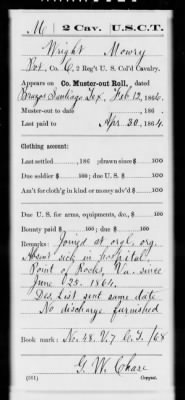 M | 2 Cav. | U.S.C.T.
Wright Mowry
Pvt., Co. C, 2 Reg't U. S. Col'd Cavalry.
Appears on Co. Muster-out Roll, dated
Brazos Santiago Tex, Feb 12, 1866.
Muster-out to date , 186 .
Last paid to Apr 30, 1864.
Clothing account:
Last settled , 186 ; drawn since $ 100
Due soldier $ 100; due U. S. $ 100
Am't for cloth'g in kind or money adv'd $ 100
Due U. S. for arms, equipments, &c., $ 100
Bounty paid $ 100; due $ 100
Remarks: Joined at orgl. org.
Absent sick in hospital
Point of Rocks, Va. since
June 25. 1864.
Des. List sent same date
No discharge furnished
Book mark: No. 48. V. 7 C. T. /68
G. W. Chase
(361) Copyist.